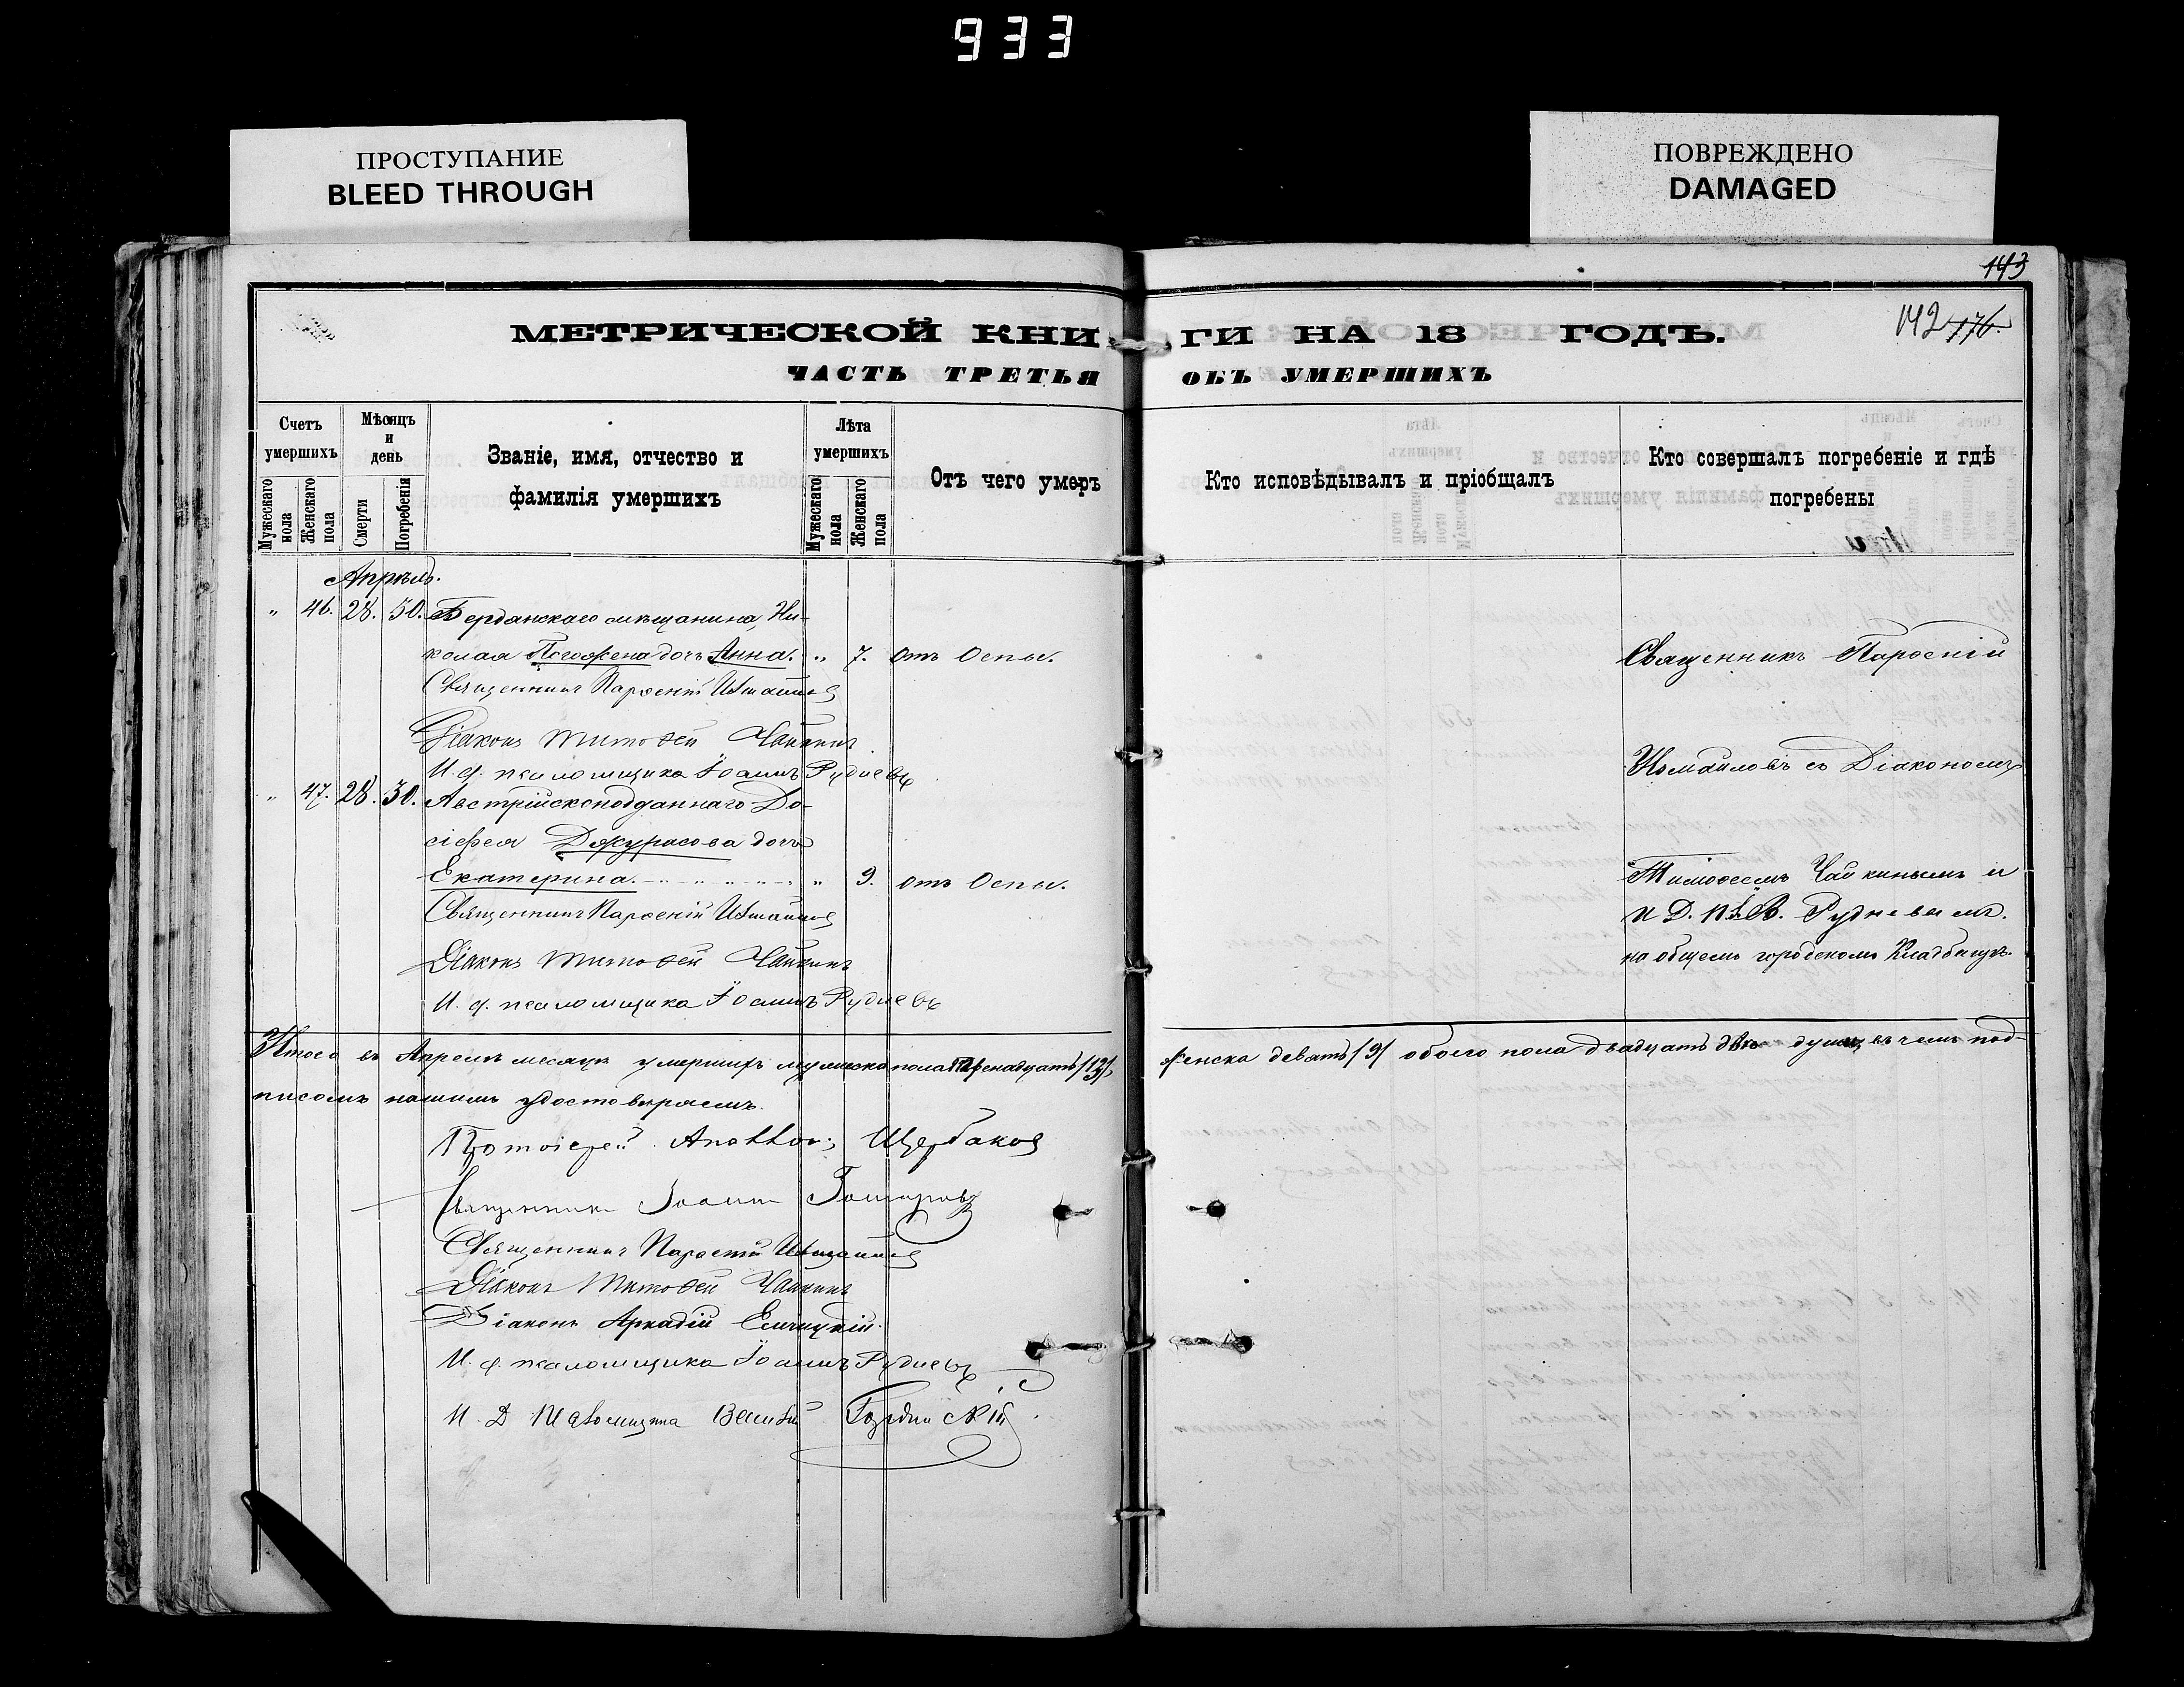 933
ПРОСТУПАНИЕ
BLEED THROUGH
ПОВРЕЖДЕНО
DAMAGED
143
142 176.
МЕТРИЧЕСКОЙ КНИ
ГИ НА 18 ГОДЪ.
ЧАСТЬ ТРЕТЬЯ
ОБЪ УМЕРШИХЪ
Счетъ
умершихъ
Мѣсяцъ
и
день
Званіе, имя, отчество и
фамилія умершихъ
Лѣта
умершихъ
Отъ чего умеръ
Кто исповѣдывалъ и пріобщалъ
Кто совершалъ погребеніе и гдѣ
погребены
Мужескаго
пола
Женскаго
пола
Смерти
Погребенія
Мужескаго
пола
Женскаго
пола
Апрѣль.
„ 46. 28. 30. Бердянскаго мѣщанина, Ни-
колая дочь Анна. „ 7. отъ Оспы.
Священникъ Парѳеній Измайловъ
Діаконъ Тимоѳей Чайкинъ
И. д. псаломщика Іоаннъ Рудневъ
„ 47. 28. 30. Австрійскоподданнаго До-
сіѳея Джурасова дочь
Екатерина. „ 9. отъ Оспы.
Священникъ Парѳеній Измайловъ
Діаконъ Тимоѳей Чайкинъ
И. д. псаломщика Іоаннъ Рудневъ
Священникъ Парѳеній
Измайловъ съ Діакономъ
Тимоѳеемъ Чайкинымъ и
И. Д. Рудневымъ.
на общемъ городскомъ Кладбищѣ.
Итого въ Апрелѣ месяцѣ умершихъ мужеска пола тринадцать /13/,
женска девять /9/ обоего пола двадцать двѣ души, въ чемъ под-
писомъ нашимъ удостовѣряемъ.
Протоіерей Щербаковъ
Священникъ Іоаннъ
Священникъ Парѳеній Измайловъ
Діаконъ Тимоѳей Чайкинъ
Діаконъ Аркадій
И. д. псаломщика Іоаннъ Рудневъ
И. Д. Псаломщика Василій